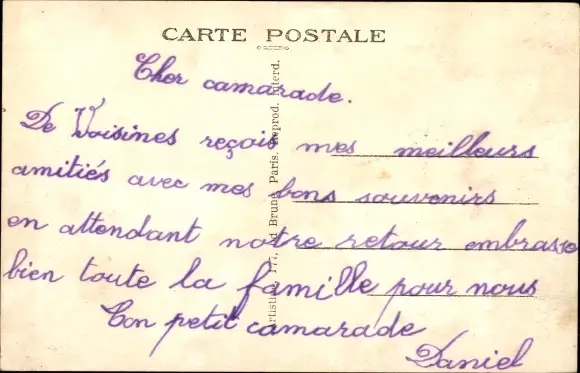 CARTE POSTALE
Cher camarade.
De Voisines reçois mes meilleurs
amitiés avec mes bons souvenirs
en attendant notre retour embrasse
bien toute la famille pour nous
Ton petit camarade
Daniel
177, Bd Brune, Paris. Reprod. Interd.